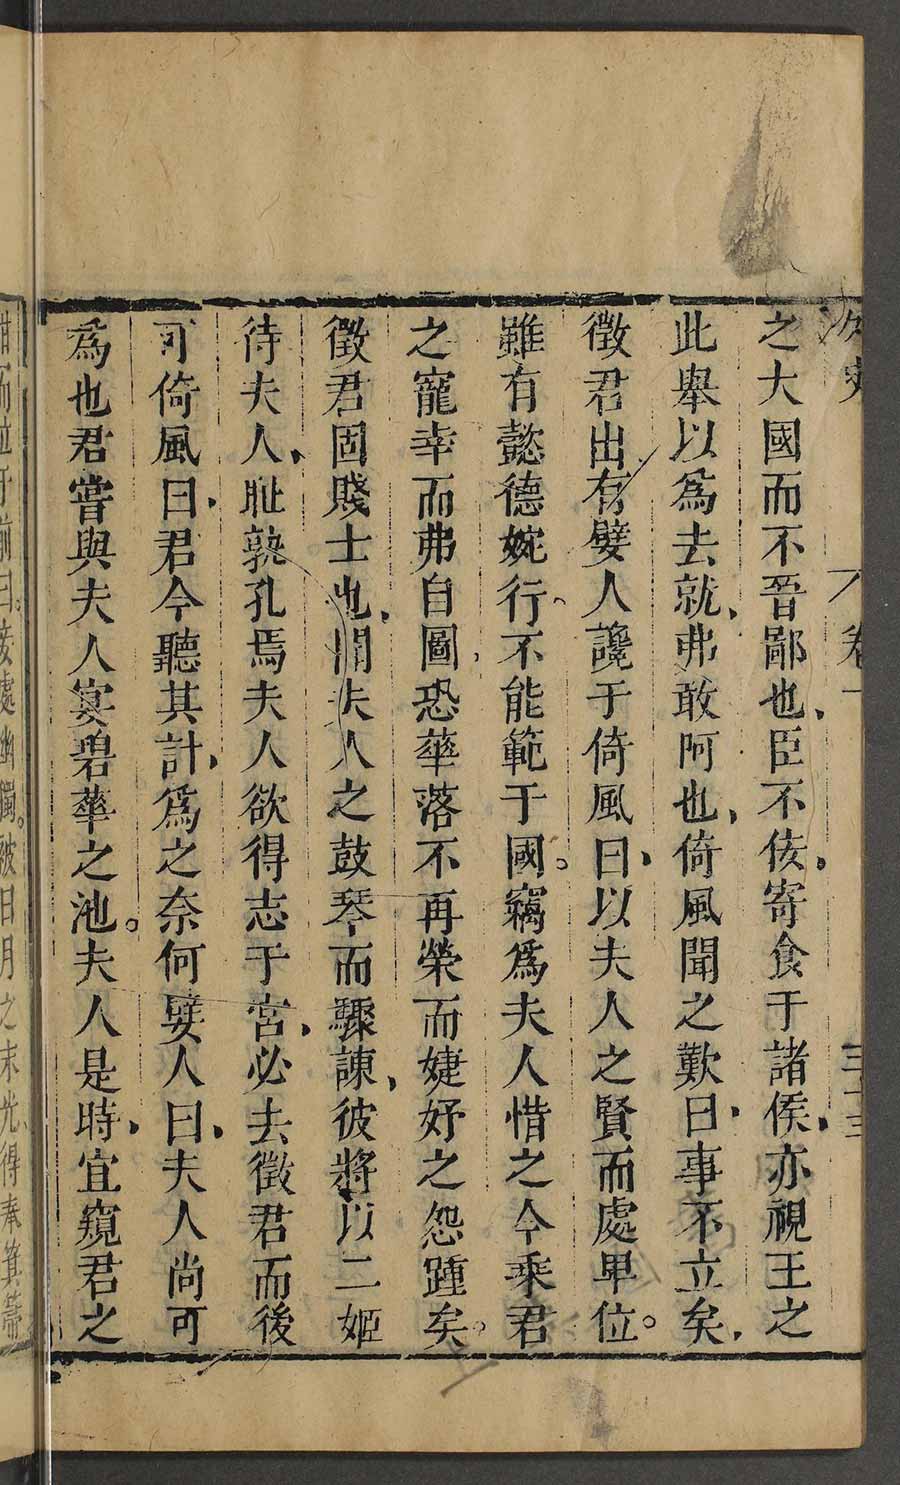 卷一
三十三
之大國而不吾鄙也臣不佞寄食于諸侯亦視王之
此舉以為去就弗敢阿也倚風聞之歎曰事不立矣
徵君出有嬖人讒于倚風曰以夫人之賢而處卑位
雖有懿德婉行不能範于國竊為夫人惜之今乘君
之寵幸而弗自圖恐華落不再榮而婕妤之怨踵矣
徵君固賤士也聞夫人之鼓琴而驟諫彼將以二姬
待夫人恥孰孔焉夫人欲得志于宮必去徵君而後
可倚風曰君今聽其計為之奈何嬖人曰夫人尚可
為也君嘗與夫人宴碧華之池夫人是時宜窺君之
前曰妾處幽獨被日月之末光得奉箕帚